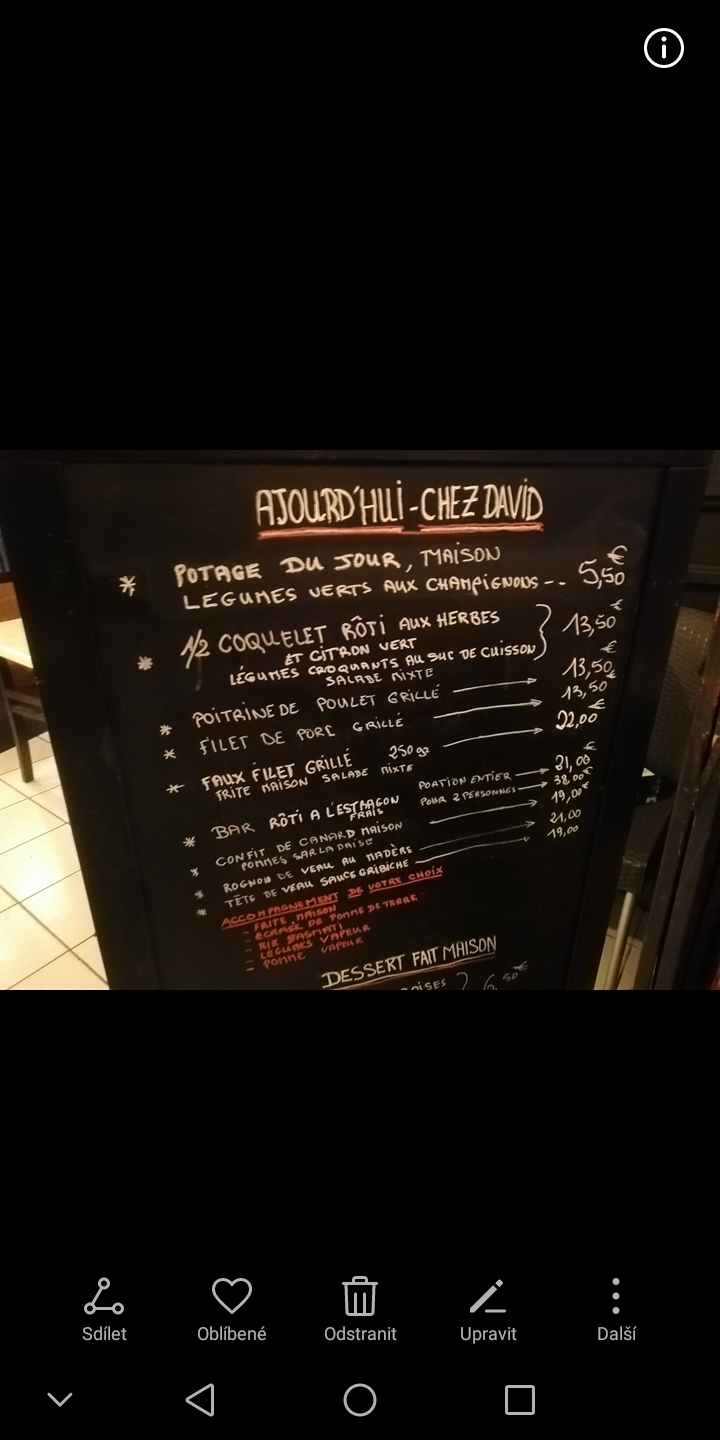 AJOURD'HUI - CHEZ DAVID
* POTAGE DU JOUR, MAISON
LEGUMES VERTS AUX CHAMPIGNONS -- . 5,50 €
* 1/2 COQUELET RÔTI AUX HERBES
ET CITRON VERT } 13,50 €
LÉGUMES CROQUANTS AU SUC DE CUISSON
SALADE MIXTE
* POITRINE DE POULET GRILLÉ → 13,50 €
* FILET DE PORC GRILLÉ → 13,50 €
* FAUX FILET GRILLÉ 250 gr → 22,00 €
FRITE MAISON SALADE MIXTE
* BAR RÔTI A L'ESTRAGON FRAIS PORTION ENTIER → 21,00 €
POUR 2 PERSONNES → 38,00 €
* CONFIT DE CANARD MAISON → 19,00 €
POMMES SARLADAISE
* ROGNON DE VEAU AU MADÈRE → 21,00
* TÊTE DE VEAU SAUCE GRIBICHE → 19,00
ACCOMPAGNEMENT DE VOTRE CHOIX
- FRITE MAISON
- ÉCRASÉ DE POMME DE TERRE
- RIZ BASMATI
- LÉGUMES VAPEUR
- POMME VAPEUR
DESSERT FAIT MAISON
} 6,50 €
Sdílet
Oblíbené
Odstranit
Upravit
Další